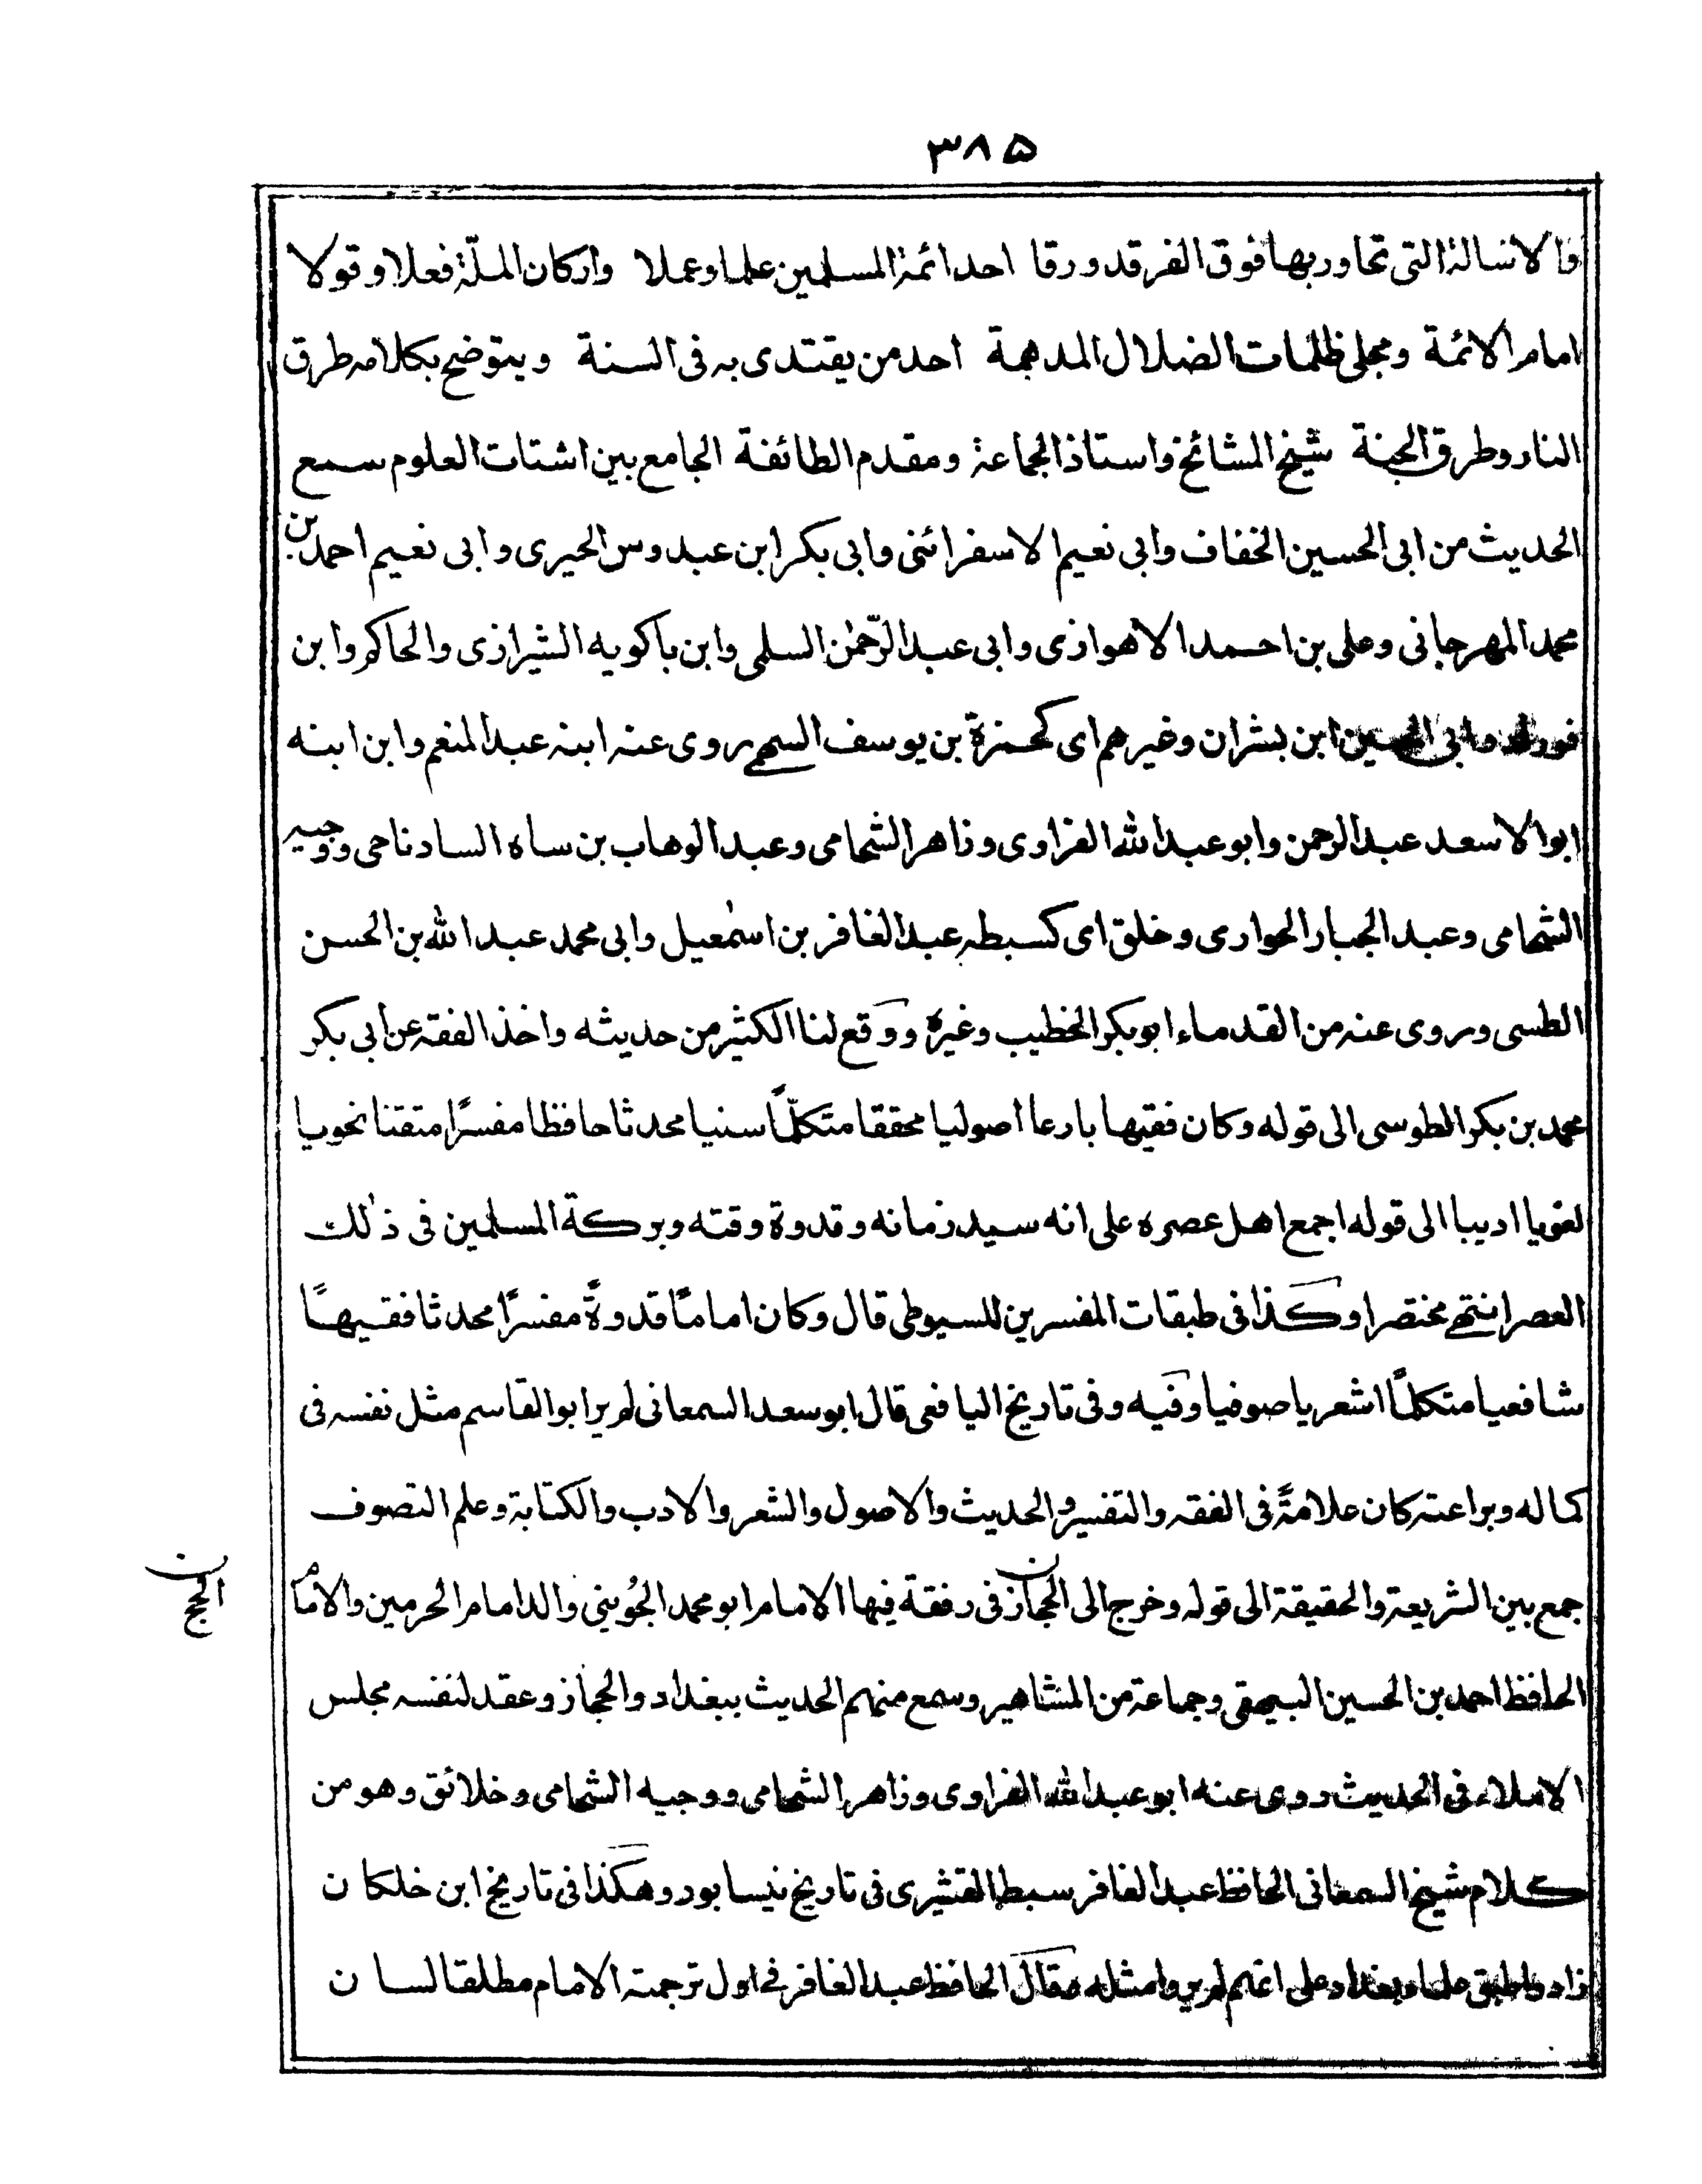 ۳۸۵
والاسالة التى تجاوربها فوق الفرقد ورقا احد ائمة المسلمين علما وعملا واركان الملّة فعلا وقولا
امام الائمة ومجلى ظلمات الضلال المدهمة احد من يقتدى به فى السنة ويتوضح بكلامه طرق
النار وطرق الجنة شيخ المشائخ واستاذ الجماعة ومقدم الطائفة الجامع بين اشتات العلوم سمع
الحديث من ابى الحسين الخفاف وابى نعيم الاسفرائنى وابى بكر ابن عبدوس الحيرى وابى نعيم احمد بن
محمد المهرجانى وعلى بن احمد الاهوازى وابى عبد الرّحمٰن السلمى وابن باكويه الشيرازى والحاكم وابن
فورك وابى الحسين ابن بشران وغيرهم اى كحمزة بن يوسف السهمے روى عنه ابنه عبد المنعم وابن ابنه
ابو الاسعد عبد الرحمن وابو عبد الله الفزاوى وزاهر الشحامى وعبد الوهاب بن ساه السادناحى ووجيه
الشحامى وعبد الجبار الحوارى وخلق اى كسبطه عبد الغافر بن اسمٰعيل وابى محمد عبد الله بن الحسن
الطسى وروى عنه من القدماء ابو بكر الخطيب وغيره ووقع لنا الكثير من حديثه واخذ الفقه عن ابى بكر
محمد بن بكر الطوسى الى قوله وكان فقيها بارعا اصوليا محققا متكلّمًا سنيا محدثا حافظا مفسرًا متقنا نحويا
لغويا اديبا الى قوله اجمع اهل عصره على انه سيد زمانه وقدوة وقته وبركة المسلمين فى ذٰلك
العصر انتهے مختصرا وكذا فى طبقات المفسرين للسيوطى قال وكان امامًا قدوةً مفسرًا محدثا فقيهًا
شافعيا متكلمًا اشعريا صوفيا وفيه وفى تاريخ اليافعى قال ابو سعد السمعانى لم ير ابو القاسم مثل نفسه فى
كماله وبراعته كان علامةً فى الفقه والتفسير والحديث والاصول والشعر والادب والكتابة وعلم التصوف
جمع بين الشريعة والحقيقة الى قوله وخرج الى الحجاز فى رفقة فيها الامام ابو محمد الجُوينى والد امام الحرمين والامام
الحج ن
الحافظ احمد بن الحسين البيهقى وجماعة من المشاهير وسمع منهم الحديث ببغداد والحجاز وعقد لنفسه مجلس
الاملاء فى الحديث روى عنه ابو عبد الله الفراوى وزاهر الشحامى ووجيه الشحامى وخلائق وهو من
كلام شيخ السمعانى الحافظ عبد الغافر سبط القشيرى فى تاريخ نيسابور وهكذا فى تاريخ ابن خلكان
زاد واطبق علماء بغداد على انهم لم يروا مثله وقال الحافظ عبد الغافر فے اول ترجمته الامام مطلقا لسان